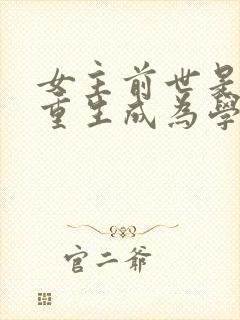 女主前世是
重生成為學
官二爺